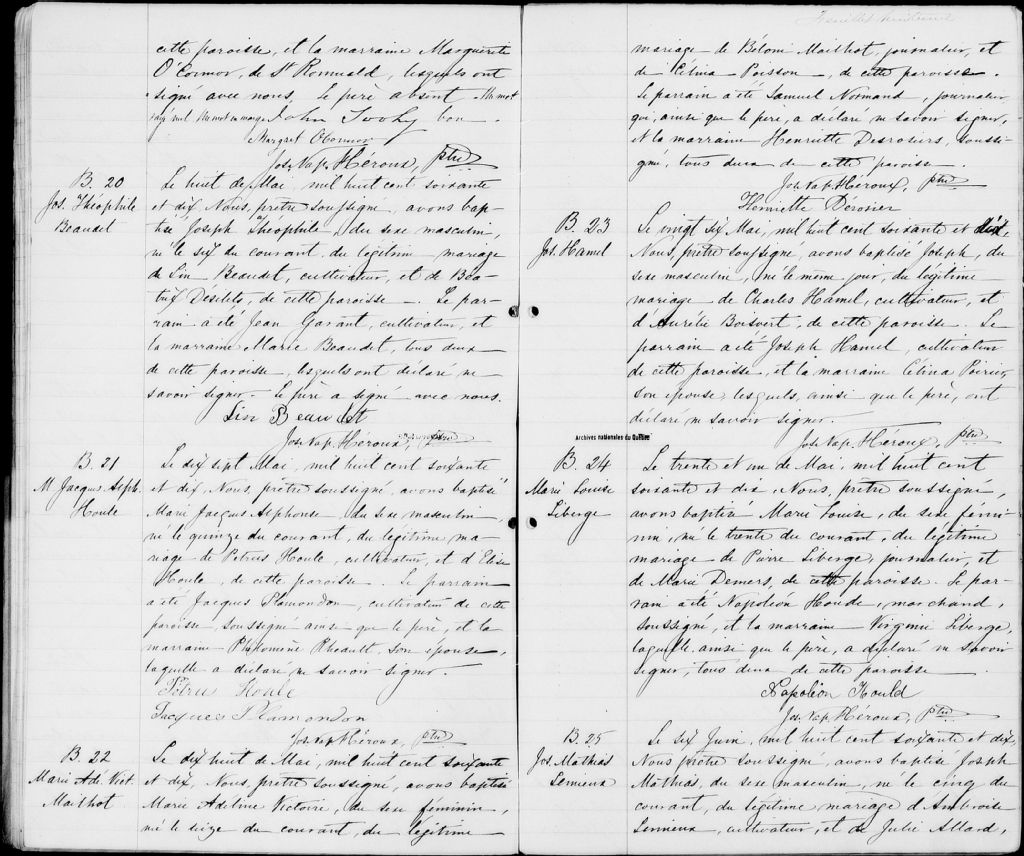 cette paroisse, et la marraine Marguerite
O'Connor, de St Romuald, lesquels ont
signé avec nous. Le père absent.
John Toohy bon.
Margret OConnor
Jos. Nap. Héroux, ptre
B. 20
Jos. Théophile
Beaudet
Le huit de Mai, mil huit cent soixante
et dix, Nous, prêtre soussigné, avons bap-
tisé Joseph Théophile, du sexe masculin,
né le six du courant, du légitime mariage
de Lin Beaudet, cultivateur, et de Béa-
trix Désilets, de cette paroisse. Le par-
rain a été Jean Garant, cultivateur, et
la marraine Marie Beaudet, tous deux
de cette paroisse, lesquels ont déclaré ne
savoir signer. Le père a signé avec nous.
Lin Beaudet
Jos. Nap. Héroux, ptre
B. 21
M. Jacques Alph.
Houle
Le dix sept Mai, mil huit cent soixante
et dix, Nous, prêtre soussigné, avons baptisé
Marie Jacques Alphonse, du sexe masculin,
né le quinze du courant, du légitime ma-
riage de Petrus Houle, cultivateur, et d'Elise
Houle, de cette paroisse. Le parrain
a été Jacques Plamondon, cultivateur de cette
paroisse soussigné ainsi que le père, et la
marraine Philomène Rheault, son épouse,
laquelle a déclaré ne savoir signer.
Pétrus Houle
Jacques Plamondon
Jos. Nap. Héroux, ptre
B. 22
Marie Ad. Vict.
Mailhot
Le dix huit de Mai, mil huit cent soixante
et dix, Nous, prêtre soussigné, avons baptisé
Marie Adeline Victoire, du sexe féminin,
née le seize du courant, du légitime
mariage de Béloni Mailhot, journalier, et
de Célina Poisson, de cette paroisse.
Le parrain a été Samuel Normand, journalier
qui, ainsi que le père, a déclaré ne savoir signer,
et la marraine Henriette Desrosiers, soussi-
gnée, tous deux de cette paroisse.
Jos. Nap. Héroux, ptre
Henriette Dérosier
B. 23
Jos. Hamel
Le vingt six Mai, mil huit cent soixante et dix,
Nous, prêtre soussigné, avons baptisé Joseph, du
sexe masculin, né le même jour, du légitime
mariage de Charles Hamel, cultivateur, et
d'Aurélie Boisvert, de cette paroisse. Le
parrain a été Joseph Hamel, cultivateur
de cette paroisse, et la marraine Célina Poirier,
son épouse, lesquels, ainsi que le père, ont
déclaré ne savoir signer.
Archives nationales du Québec
Jos. Nap. Héroux, ptre
B. 24
Marie Louise
Leberge
Le trente et un de Mai, mil huit cent
soixante et dix, Nous, prêtre soussigné,
avons baptisé Marie Louise, du sexe fémi-
nin, née le trente du courant, du légitime
mariage de Pierre Leberge, journalier, et
de Marie Demers, de cette paroisse. Le par-
rain a été Napoléon Houde, marchand,
soussigné, et la marraine Virginie Leberge,
laquelle ainsi que le père, a déclaré ne savoir
signer, tous deux de cette paroisse
Napoléon Hould
Jos. Nap. Héroux, ptre
B. 25
Jos. Mathias
Lemieux
Le six Juin, mil huit cent soixante et dix,
Nous prêtre soussigné, avons baptisé Joseph
Mathias, du sexe masculin, né le cinq du
courant, du légitime mariage d'Ambroise
Lemieux, cultivateur, et de Julie Allard,